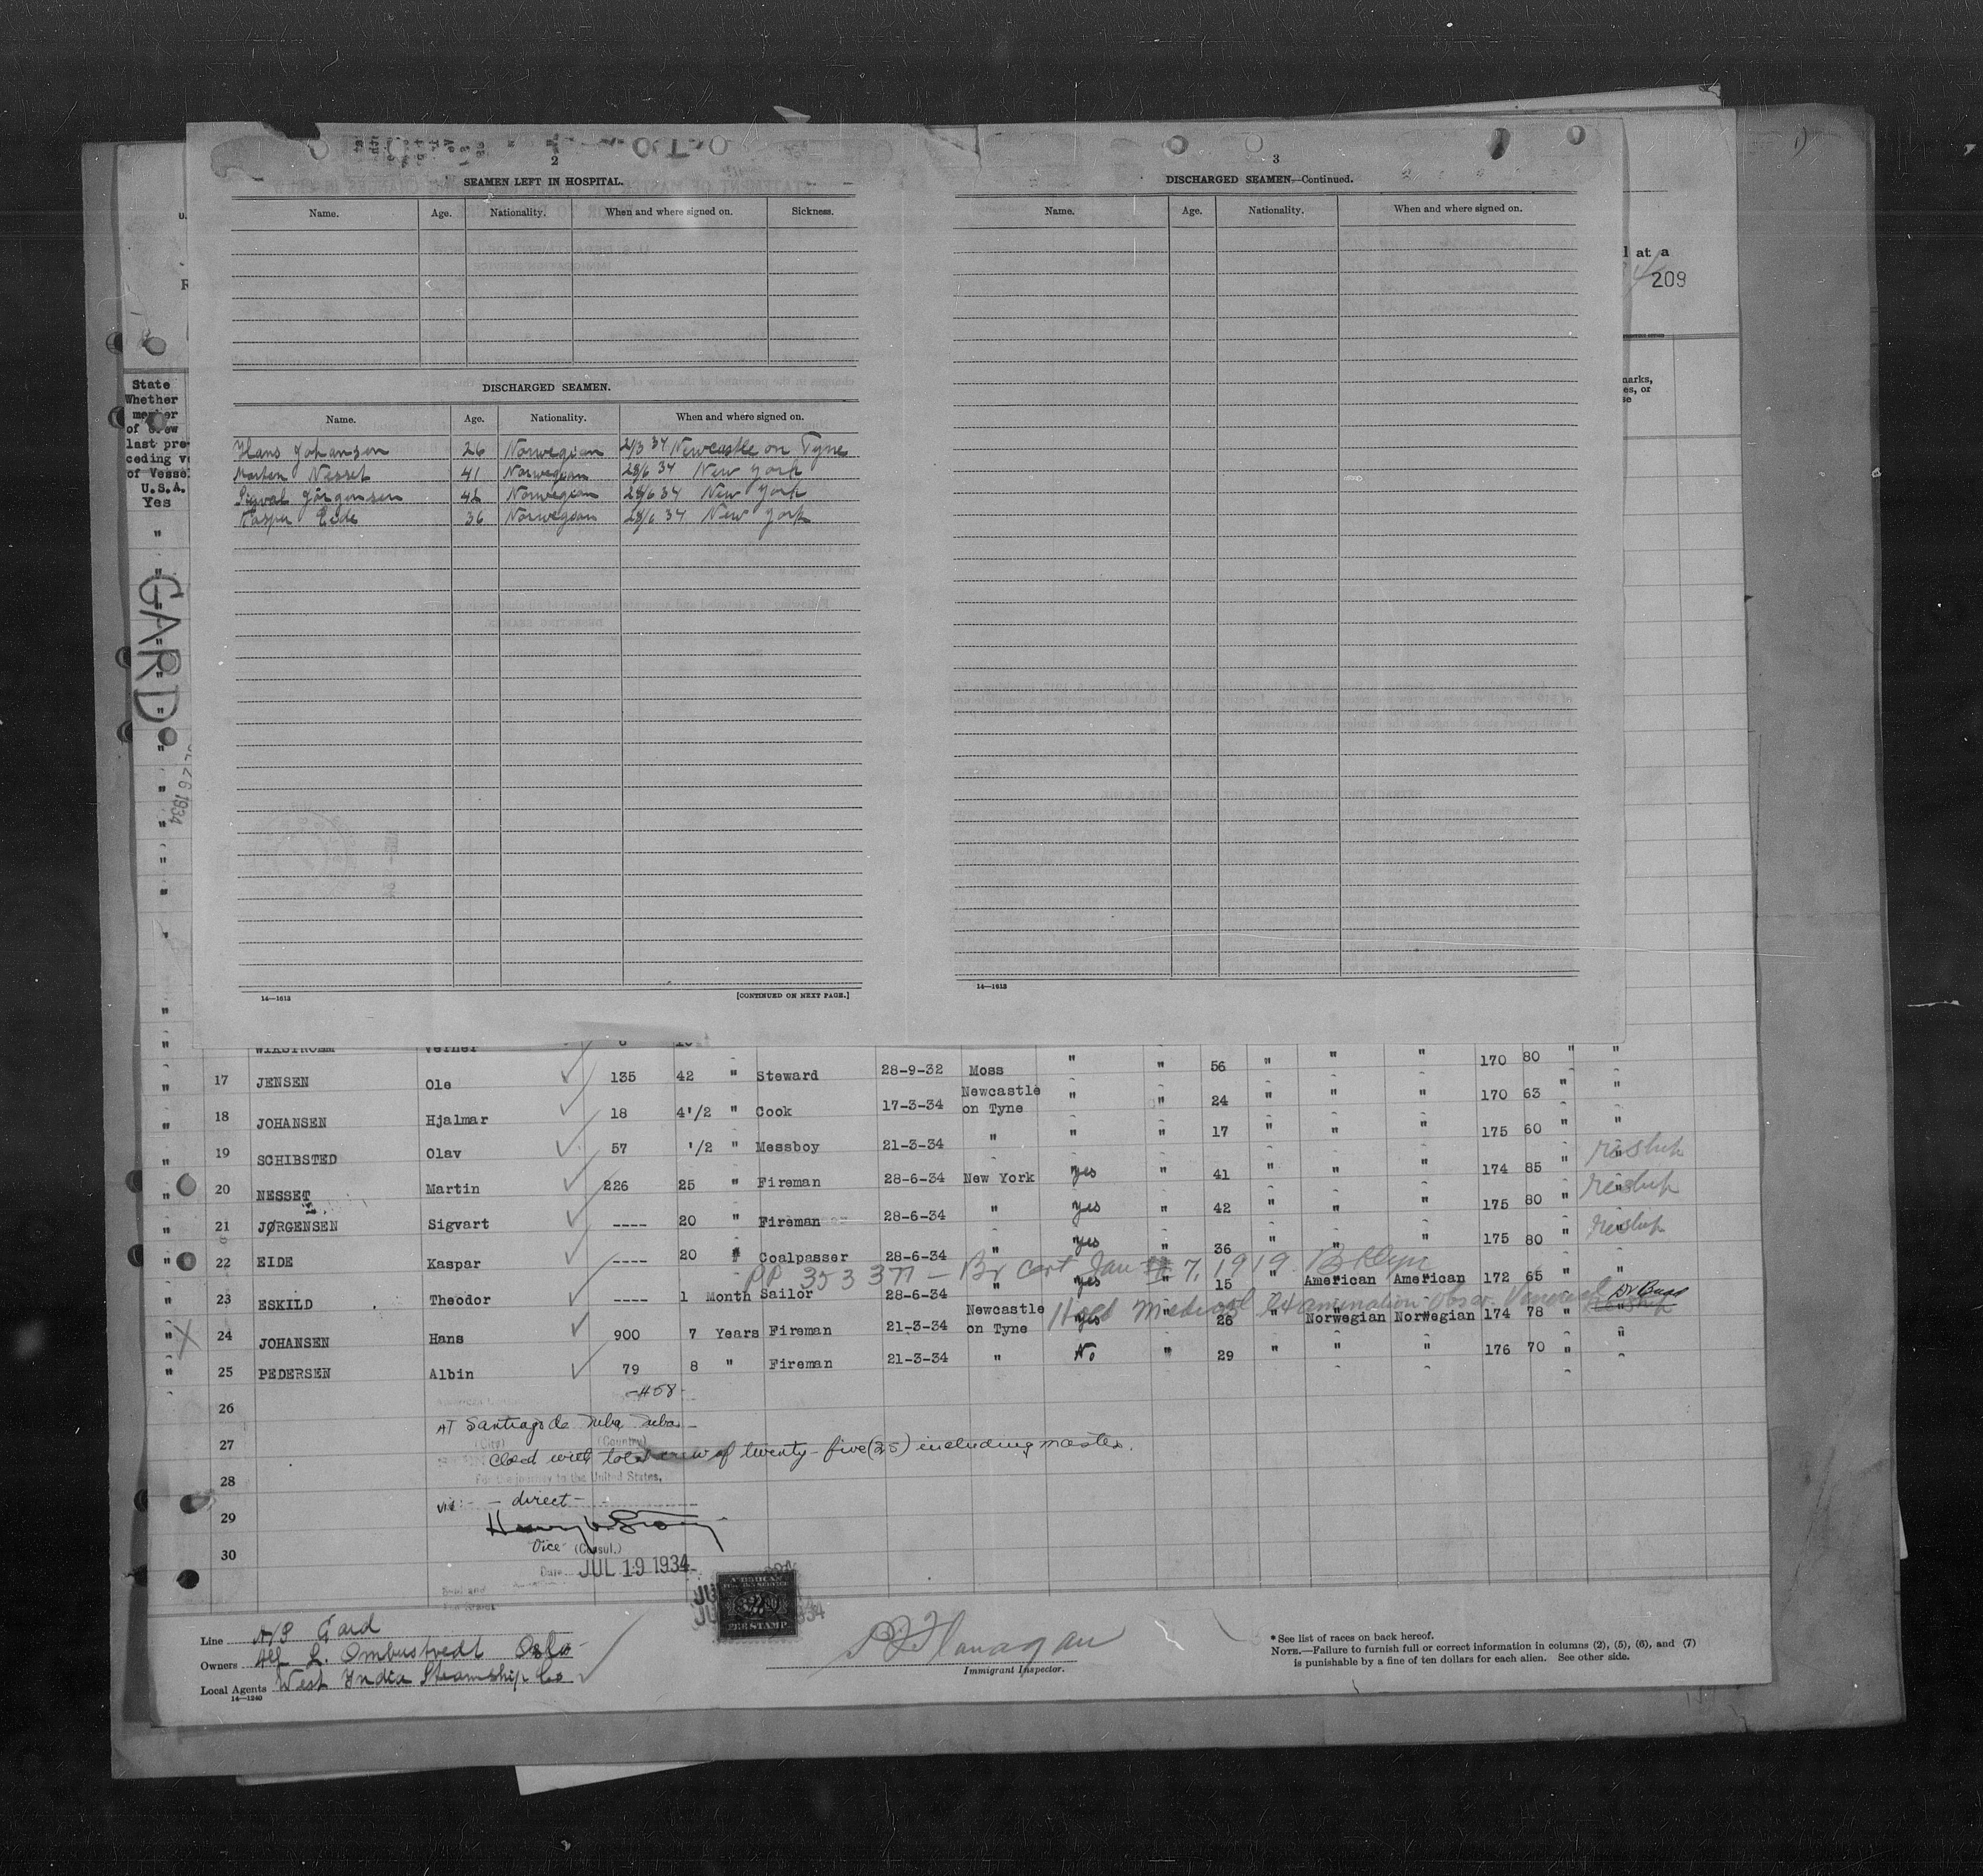 2
SEAMEN LEFT IN HOSPITAL.
Name. Age. Nationality. When and where signed on. Sickness.
DISCHARGED SEAMEN.
Name. Age. Nationality. When and where signed on.
Hans Johansen 26 Norwegian 21/3 34 Newcastle on Tyne
Marten Nesset 41 Norwegian 28/6 34 New York
Sigval Jörgensen 42 Norwegian 28/6 34 New York
Kasper Eide 36 Norwegian 28/6 34 New York
14—1613 [CONTINUED ON NEXT PAGE.]
3
DISCHARGED SEAMEN—Continued.
Name. Age. Nationality. When and where signed on.
14—1613
l at a
209
marks,
es, or
se
State
Whether
member
of crew
last pre-
ceding v
of Vesse
U.S.A.
Yes
GARD
26 1934
WIKSTROEM Verner
17 JENSEN Ole 135 42 " Steward 28-9-32 Moss " " 56 " " " 170 80 " "
18 JOHANSEN Hjalmar 18 4 1/2 " Cook 17-3-34 Newcastle on Tyne " " 24 " " " 170 63 " "
19 SCHIBSTED Olav 57 1/2 " Messboy 21-3-34 " " " 17 " " " 175 60 " "
20 NESSET Martin 226 25 " Fireman 28-6-34 New York yes " 41 " " " 174 85 " " reship
21 JØRGENSEN Sigvart ---- 20 " Fireman 28-6-34 " yes " 42 " " " 175 80 " " reship
22 EIDE Kaspar ---- 20 " Coalpasser 28-6-34 " yes " 36 " " " 175 80 " " reship
PP 353 377 — Br Cert Jan 7, 1919 Bklyn
23 ESKILD Theodor ---- 1 Month Sailor 28-6-34 " yes " 15 " American American 172 65 " "
Hold Medical examination obser. Venereal Dr Bugg
24 JOHANSEN Hans 900 7 Years Fireman 21-3-34 Newcastle on Tyne yes " 26 " Norwegian Norwegian 174 78 " "
25 PEDERSEN Albin 79 8 " Fireman 21-3-34 " No " 29 " " " 176 70 " "
26
27
28
29
30
-458-
AT Santiago de Cuba Cuba
(City) (Country)
Closed with total crew of twenty-five (25) including master.
For the journey to the United States,
via: - direct -
Vice (Consul.)
Date JUL 19 1934
Line A/S Gard
Owners Alf L. Ombustvedt Oslo
Local Agents West India Steamship Co
14—1240
FEE STAMP
Flanagan
Immigrant Inspector.
* See list of races on back hereof.
NOTE.—Failure to furnish full or correct information in columns (2), (5), (6), and (7)
is punishable by a fine of ten dollars for each alien. See other side.